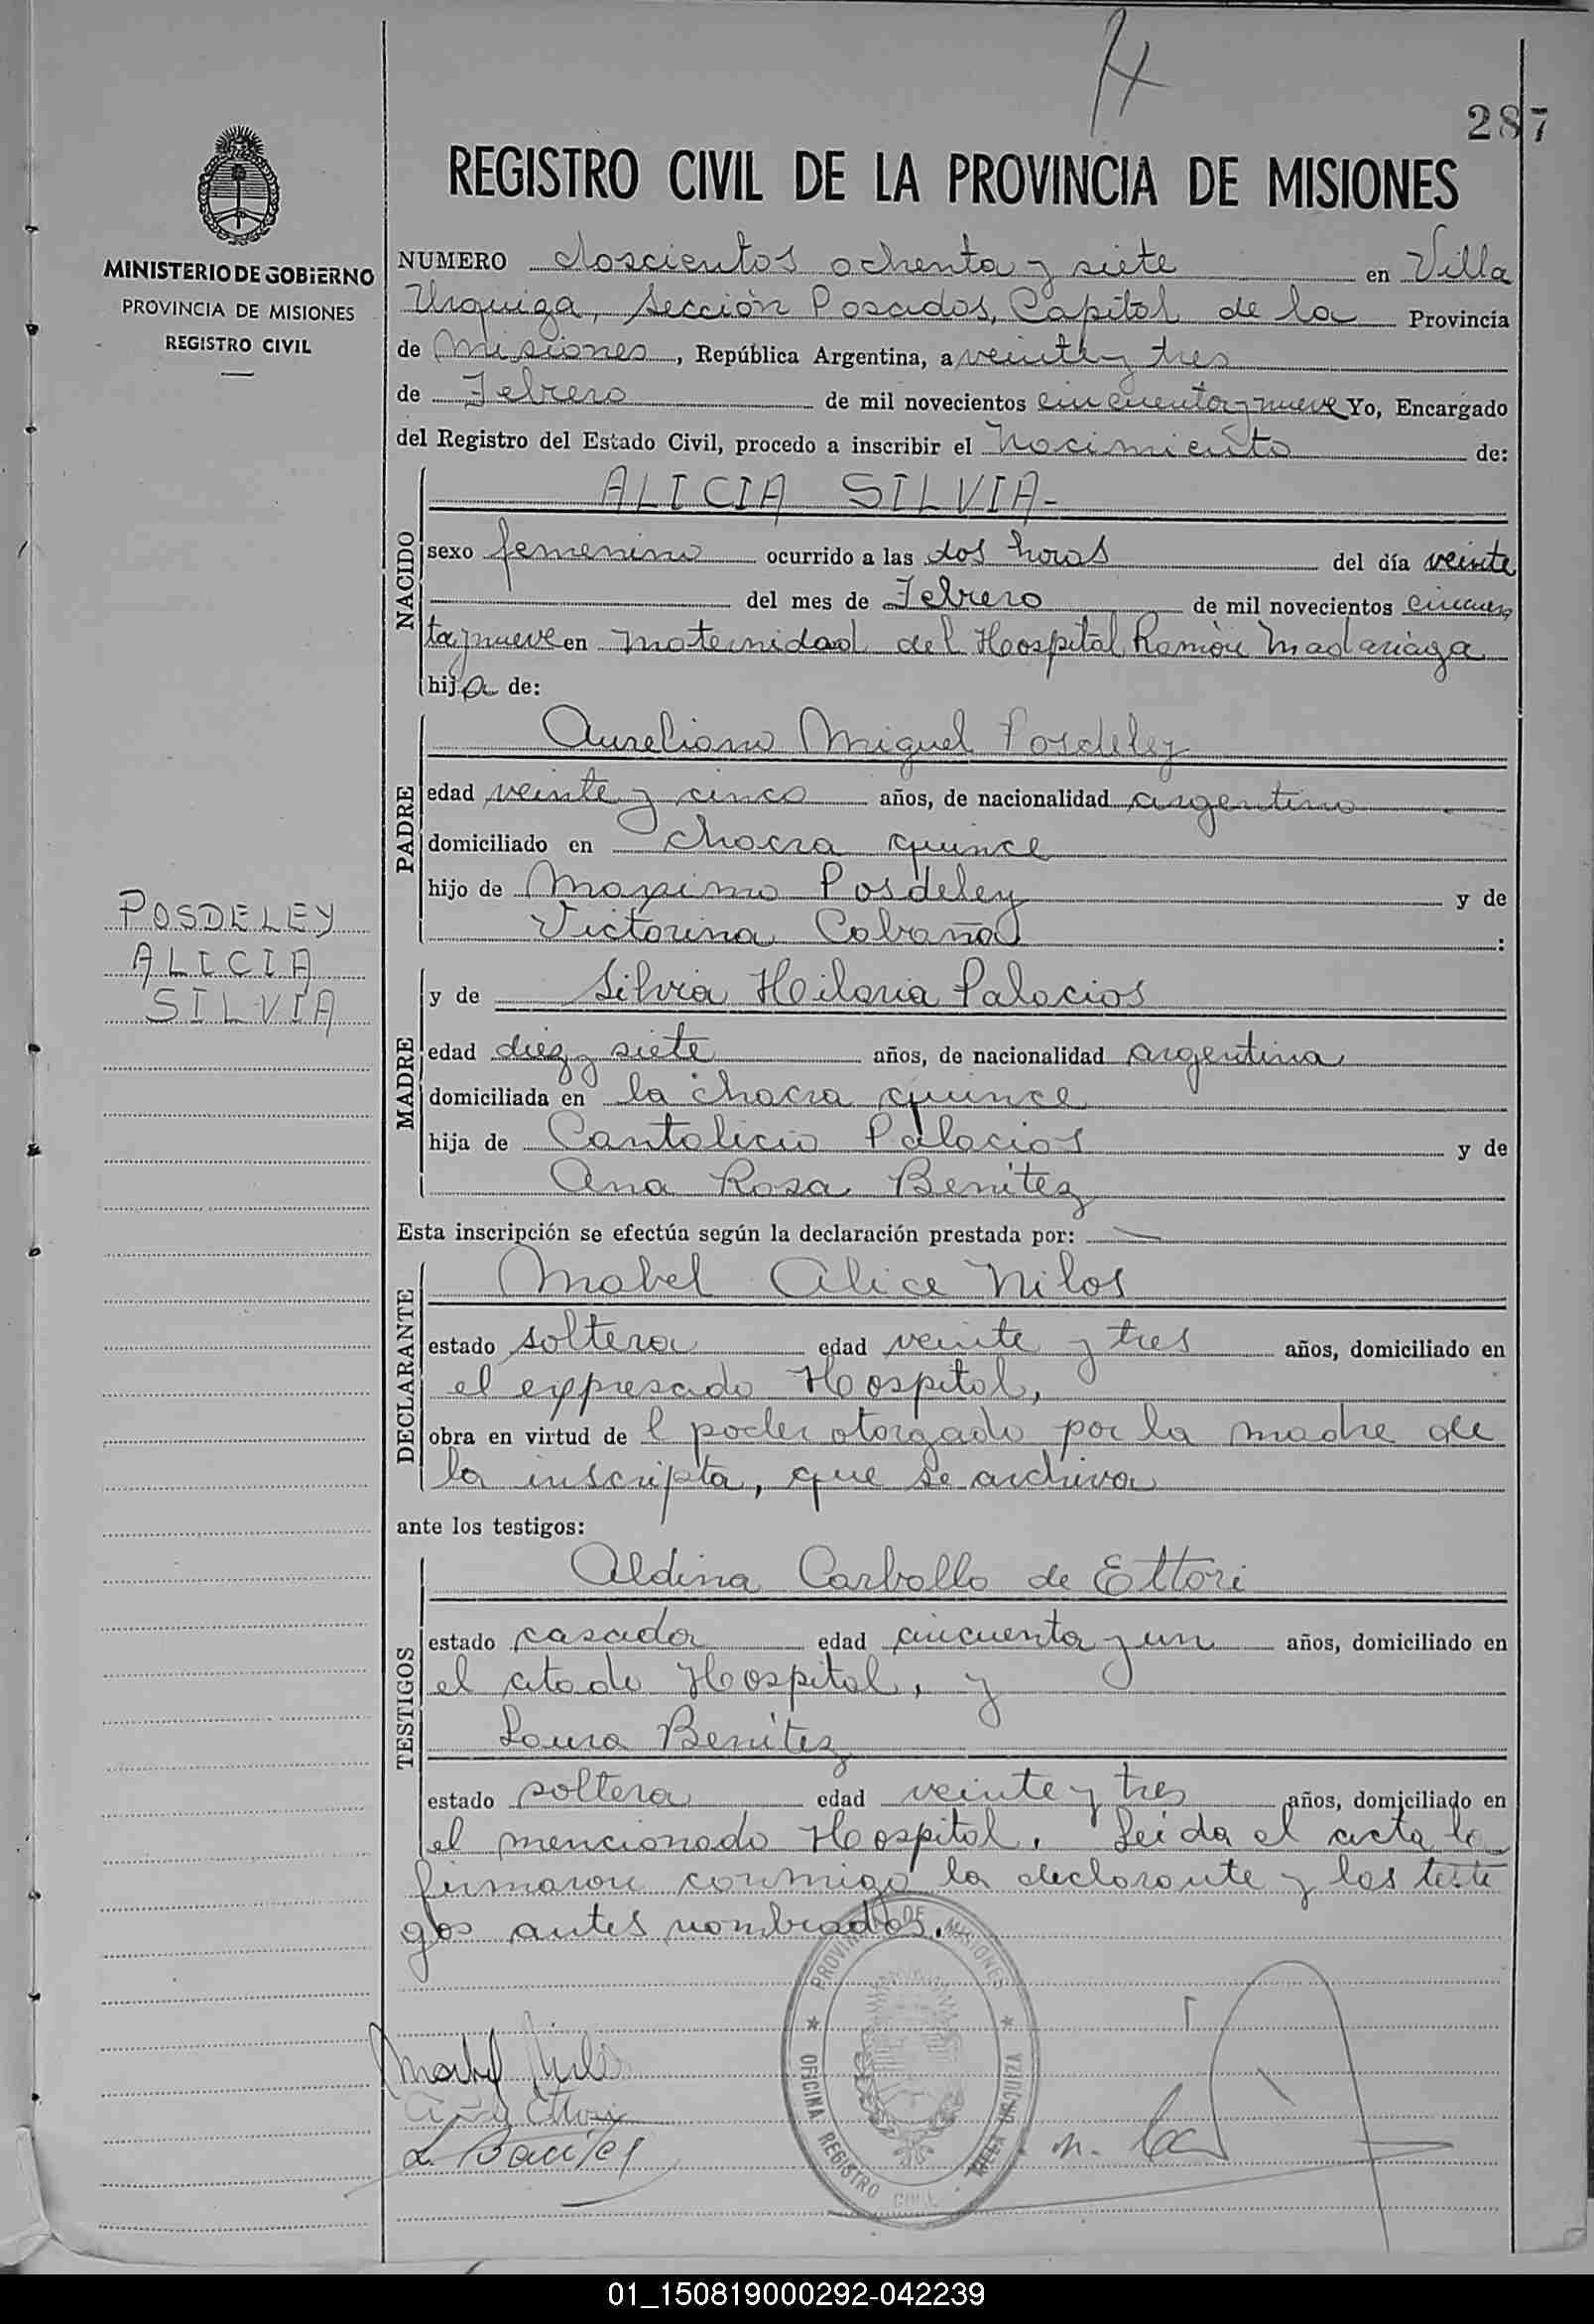 287
REGISTRO CIVIL DE LA PROVINCIA DE MISIONES
MINISTERIO DE GOBIERNO
PROVINCIA DE MISIONES
REGISTRO CIVIL
NUMERO doscientos ochenta y siete en Villa
Urquiza, Sección Posadas, Capital de la Provincia
de Misiones, República Argentina, a veinte y tres
de Febrero de mil novecientos cincuenta y nueve Yo, Encargado
del Registro del Estado Civil, procedo a inscribir el Nacimiento de:
ALICIA SILVIA-
NACIDO
sexo femenino ocurrido a las dos horas del día veinte
del mes de Febrero de mil novecientos cincuen
ta y nueve en Maternidad del Hospital Ramón Madariaga
hija de:
Aureliano Miguel Posdeley
PADRE
edad veinte y cinco años, de nacionalidad argentino
domiciliado en chacra quince
hijo de Maximo Posdeley y de
Victorina Cabaña:
POSDELEY
ALICIA
SILVIA
y de Silvia Hilaria Palacios
MADRE
edad diez y siete años, de nacionalidad argentina
domiciliada en la chacra quince
hija de Cantalicio Palacios y de
Ana Rosa Benitez
Esta inscripción se efectúa según la declaración prestada por:
Mabel Alice Nilos
DECLARANTE
estado soltera edad veinte y tres años, domiciliado en
el expresado Hospital,
obra en virtud de l poder otorgado por la madre de
la inscripta, que se archiva
ante los testigos:
Aldina Carballo de Ettori
TESTIGOS
estado casada edad cincuenta y un años, domiciliado en
el citado Hospital, y
Laura Benitez
estado soltera edad veinte y tres años, domiciliado en
el mencionado Hospital. Leída el acta la
firmaron conmigo la declarante y los testi
gos antes nombrados.
PROVINCIA DE MISIONES
OFICINA REGISTRO CIVIL - VILLA URQUIZA
L. Benitez
01_150819000292-042239